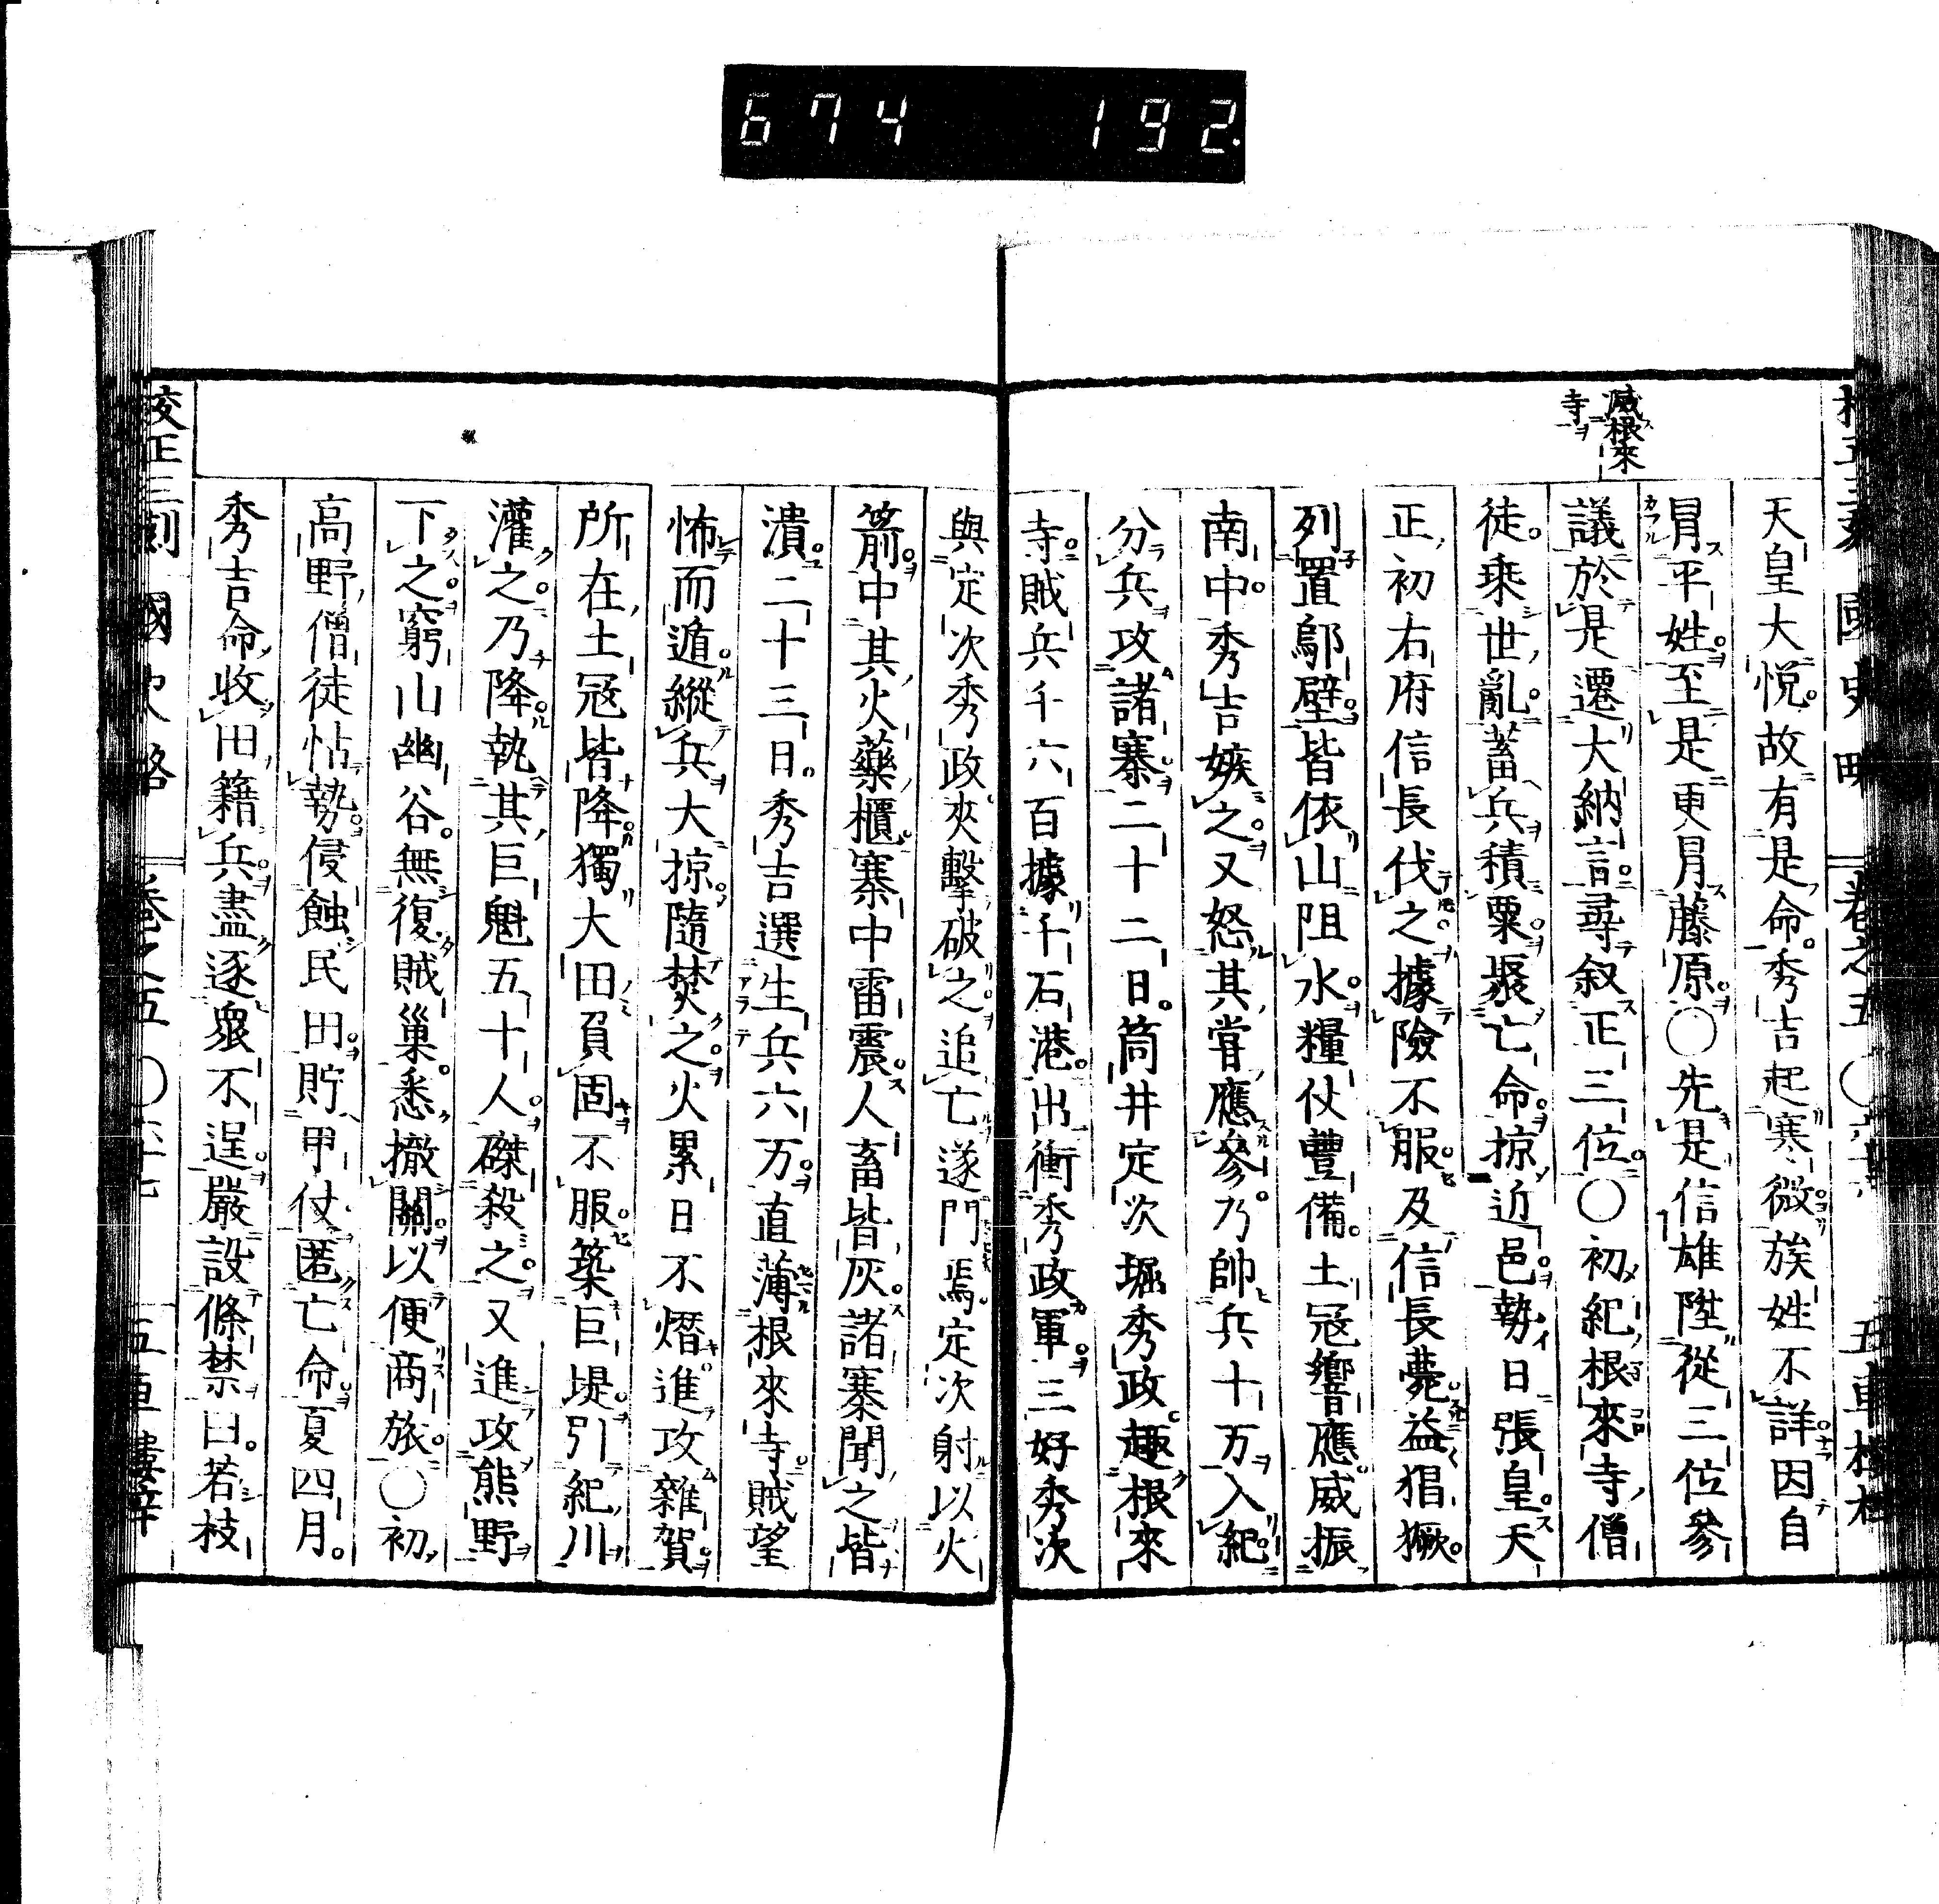 674 192.
滅根來
寺
天皇大悅故有是命秀吉起寒微族姓不詳因自
冐平姓至是更冐藤原〇先是信雄陞從三位參
議於是遷大納言尋叙正三位〇初紀根來寺僧
徒乗世亂蓄兵積粟聚亡命掠近邑勢日張皇天
正初右府信長伐之據險不服及信長薨益猖獗
列置鄔壁皆依山阻水糧仗豐備土冦響應威振
南中秀吉嫉之又怒其嘗應參乃帥兵十万入紀
分兵攻諸寨二十二日筒井定次堀秀政趣根來
寺賊兵千六百據千石港出衝秀政軍三好秀次
與定次秀政夾擊破之追亡遂門焉定次射以火
箭中其火藥櫃寨中雷震人畜皆灰諸寨聞之皆
潰二十三日秀吉選生兵六万直薄根來寺賊望
怖而遁縱兵大掠隨焚之火累日不熸進攻雜賀
所在土冦皆降獨大田負固不服築巨堤引紀川
灌之乃降執其巨魁五十人磔殺之又進攻熊野
下之窮山幽谷無復賊巢悉撤關以便商旅〇初
高野僧徒怙勢侵蝕民田貯甲仗匿亡命夏四月
秀吉命收田籍兵盡逐衆不逞嚴設條禁曰若枝
校正三刻 國史略 卷之五 〇 五車樓梓